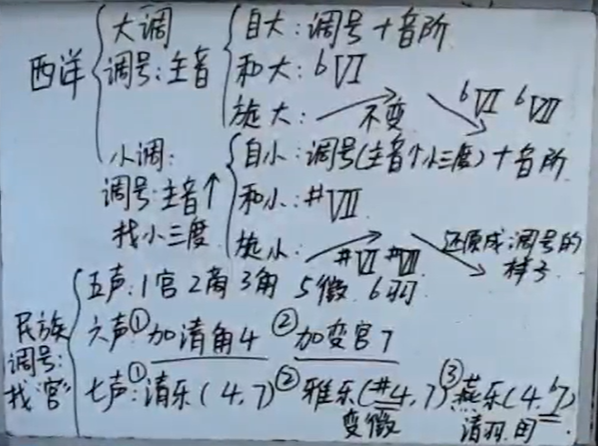 西洋
大调
调号:主音
自大:调号+音阶
和大:bVI
旋大: 不变 bVI bVII
小调:
调号:主音↑
找小三度
自小:调号(主音↑小三度)+音阶
和小:#VII
旋小: #VI #VII 还原成调号的
样子
民族
调号:
找"宫"
五声:1宫 2商 3角 5徵 6羽
六声①加清角4 ②加变宫7
七声:①清乐(4,7)②雅乐(#4,7)③燕乐(4,b7)
变徵 清羽.闰